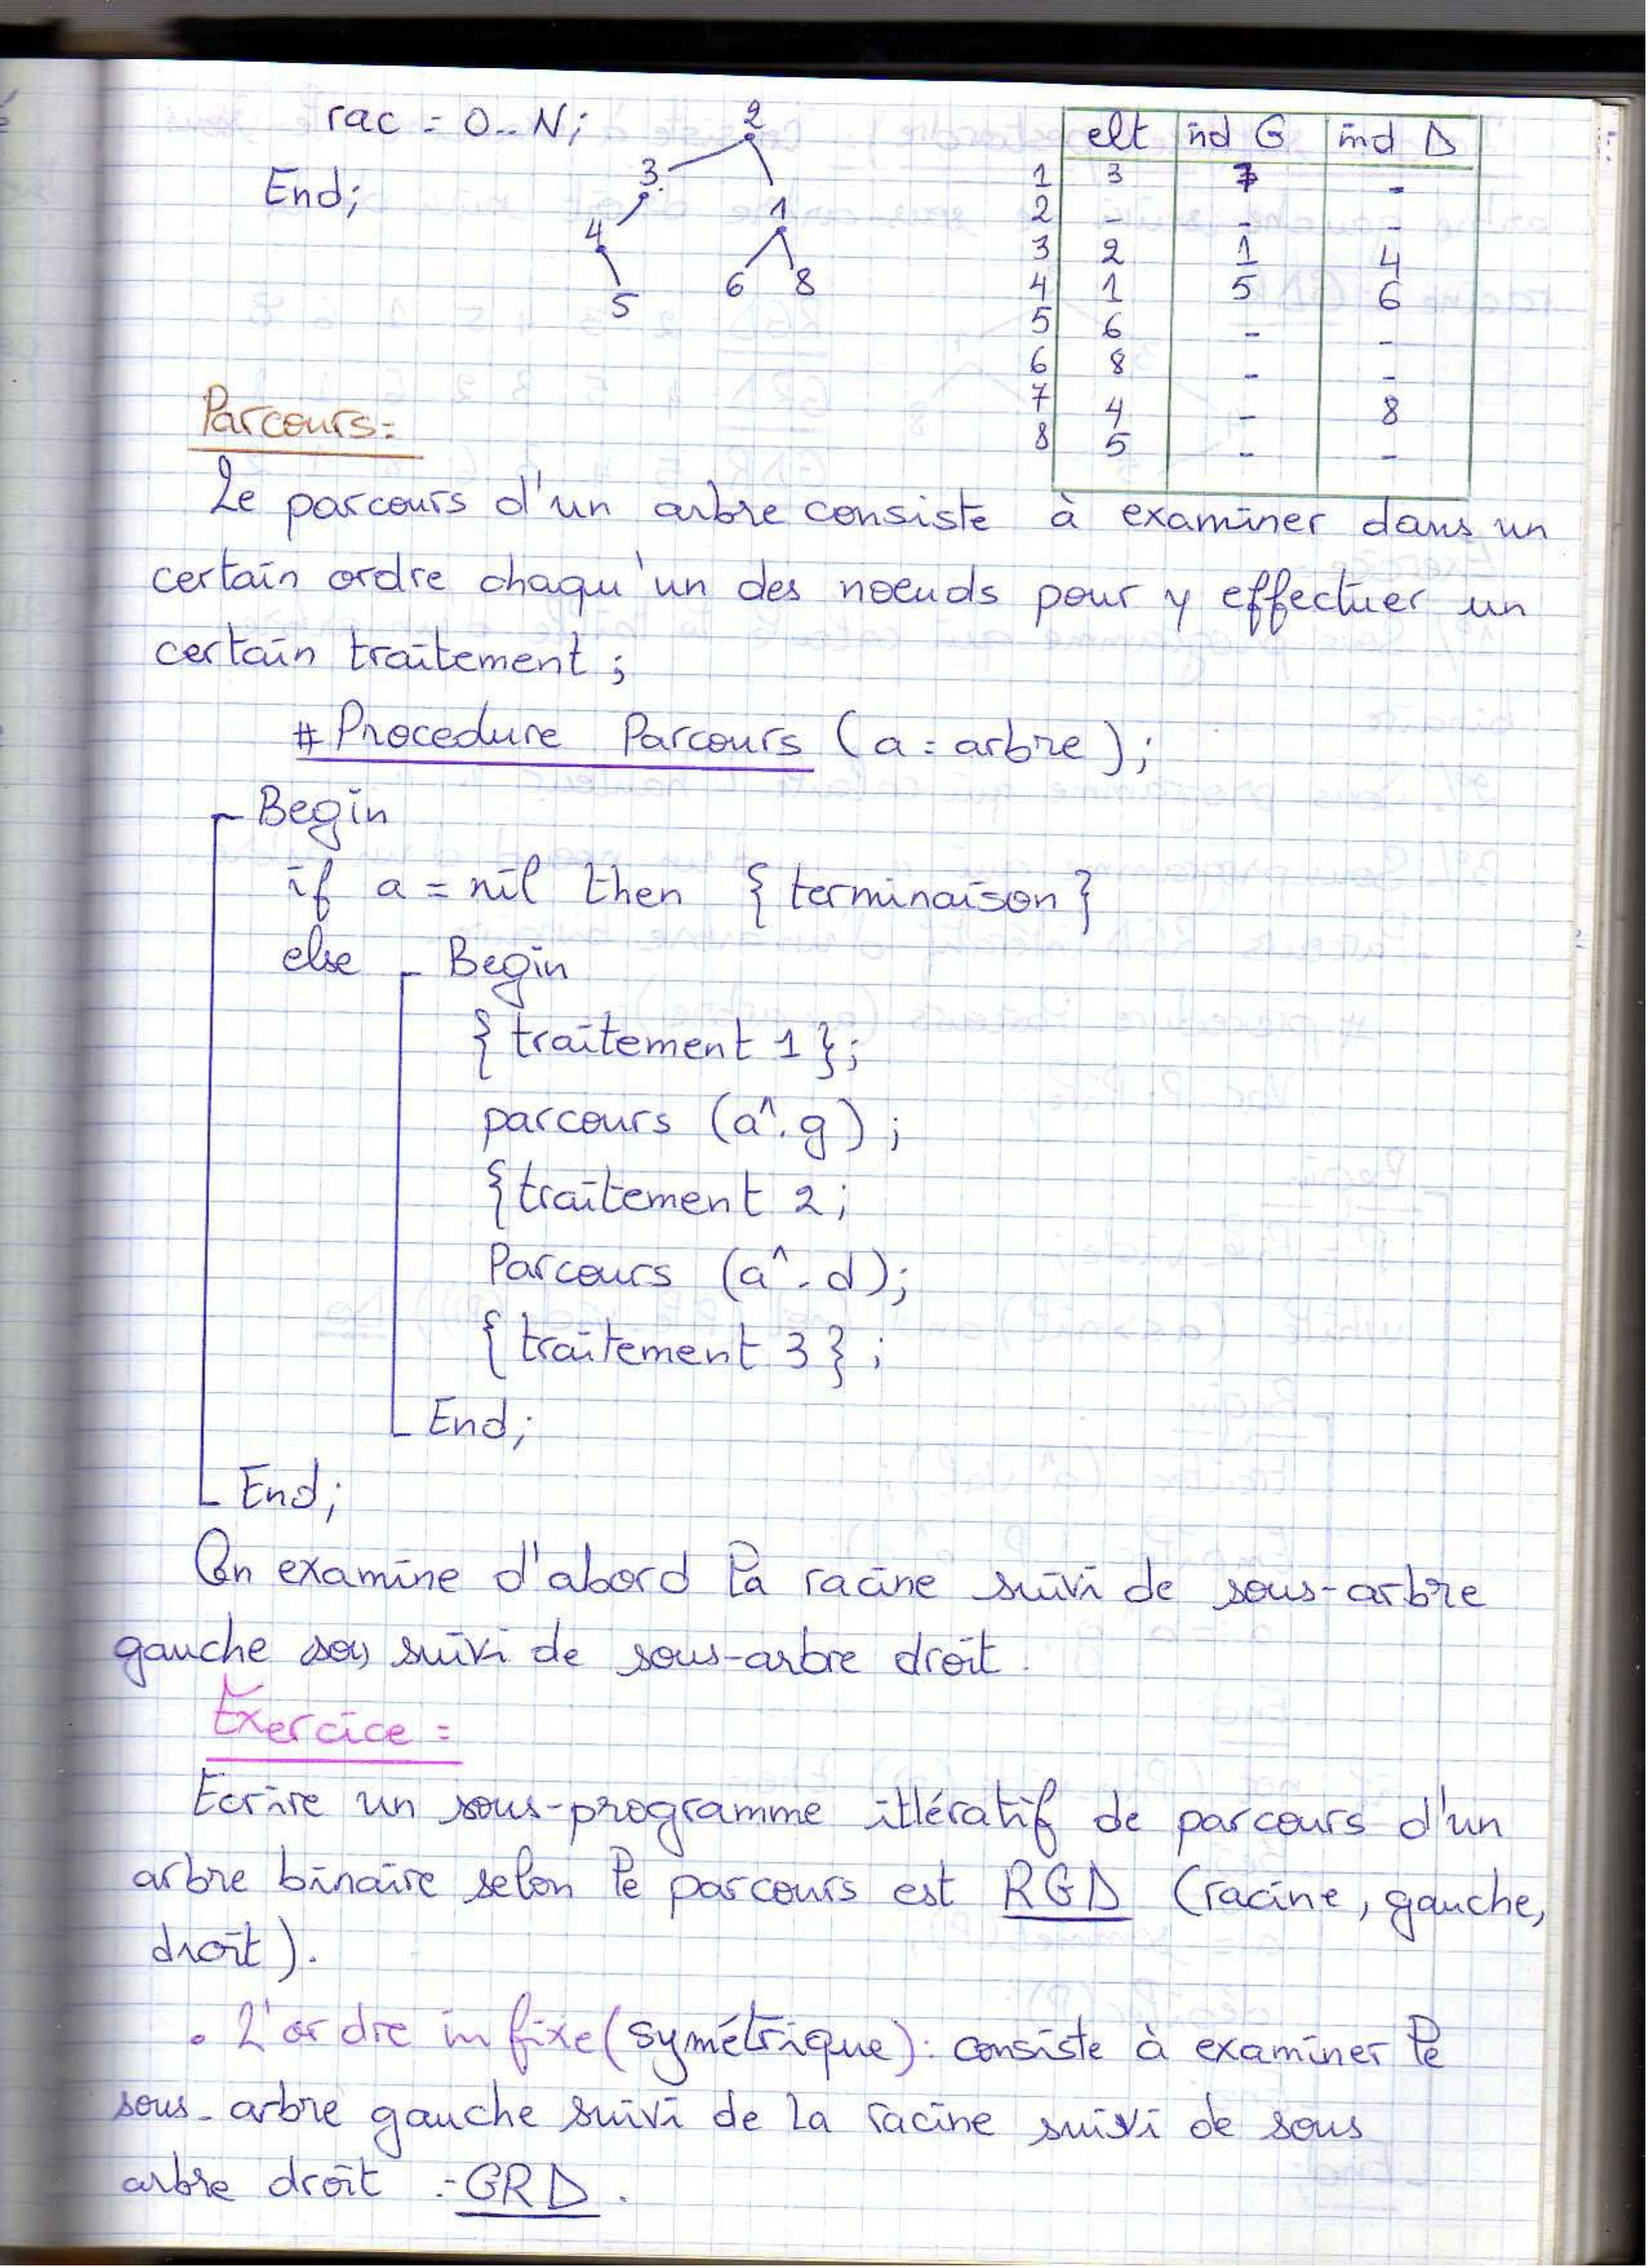 rac = 0..N;
End;
2
3
1
4
6 8
5
elt ind G ind D
1 3 7 -
2 - - -
3 2 1 4
4 1 5 6
5 6 - -
6 8 - -
7 4 - 8
8 5 - -
Parcours:
Le parcours d'un arbre consiste à examiner dans un
certain ordre chaqu'un des noeuds pour y effectuer un
certain traitement ;
# Procedure Parcours (a : arbre);
Begin
if a = nil then { terminaison }
else Begin
{ traitement 1 };
parcours (a^.g) ;
{ traitement 2 ;
Parcours (a^.d);
{ traitement 3 } ;
End;
End;
On examine d'abord la racine suivi de sous-arbre
gauche suivi de sous-arbre droit.
Exercice :
Ecrire un sous-programme ittératif de parcours d'un
arbre binaire selon le parcours est RGD (racine, gauche,
droit).
• L'ordre infixe (symétrique) : consiste à examiner le
sous-arbre gauche suivi de la racine suivi de sous
arbre droit : GRD.